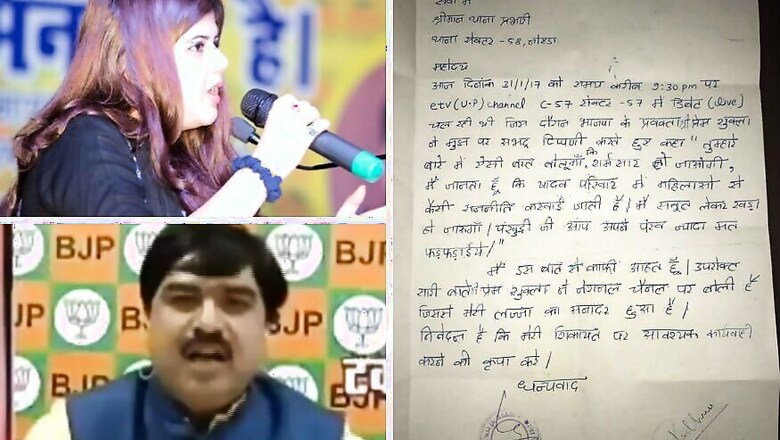 मन
है।
BJP
BJP
BJP
BJP
BJP
सेवा में
श्रीमान थाना प्रभारी
थाना सेक्टर -58, नोएडा
महोदय
आज दिनांक 31/1/17 को समय करीब 9:30 pm पर
etv (U.P) channel C-57 सेक्टर -57 में डिबेट (live)
चल रही थी जिस दौरान भाजपा के प्रवक्ता श्री प्रेम शुक्ला
ने मुझ पर अभद्र टिप्पणी करते हुए कहा "तुम्हारे
बारे में ऐसी बात बोलूगाँ, कि शर्मसार हो जाओगी,
मैं जानता हूँ कि यादव परिवार में महिलाओ से
कैसी राजनीति करवाई जाती है। मैं सबूत लेकर खड़ा
हो जाऊगाँ। पंखुड़ी जी आप अपने पंख ज्यादा मत
फड़फड़ाईये।"
मैं इस बात से काफी आहत हूँ। उपरोक्त
सारी बातें प्रेम शुक्ला ने नेशनल चैनल पर बोली है
जिससे मेरी लज्जा का अनादर हुआ है।
निवेदन है कि मेरी शिकायत पर आवश्यक कार्यवाही
करने की कृपा करे।
धन्यवाद